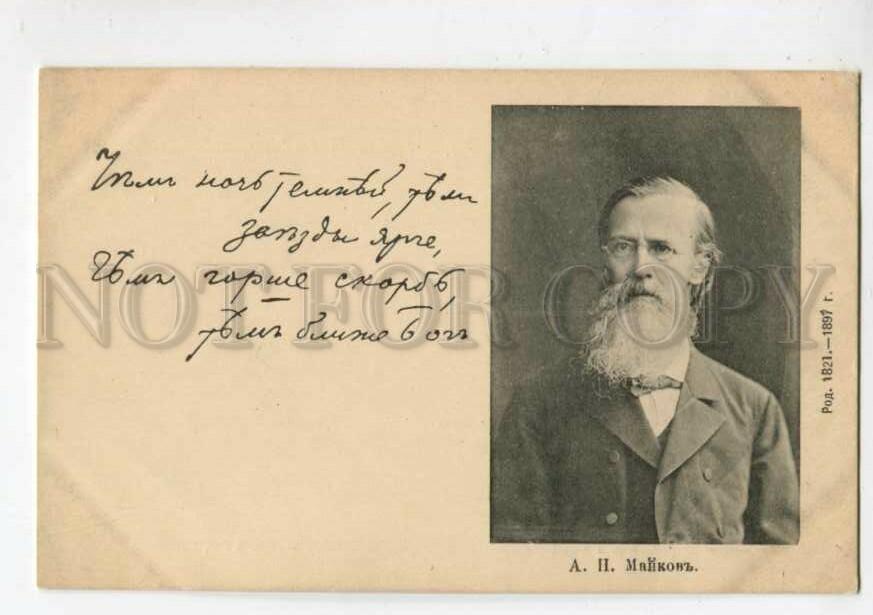 Чѣмъ ночь темнѣй, тѣмъ
звѣзды ярче,
Чѣмъ горше скорбь,
тѣмъ ближе Богъ
А. Н. Майковъ.
Род. 1821.—1897 г.
NOT FOR COPY